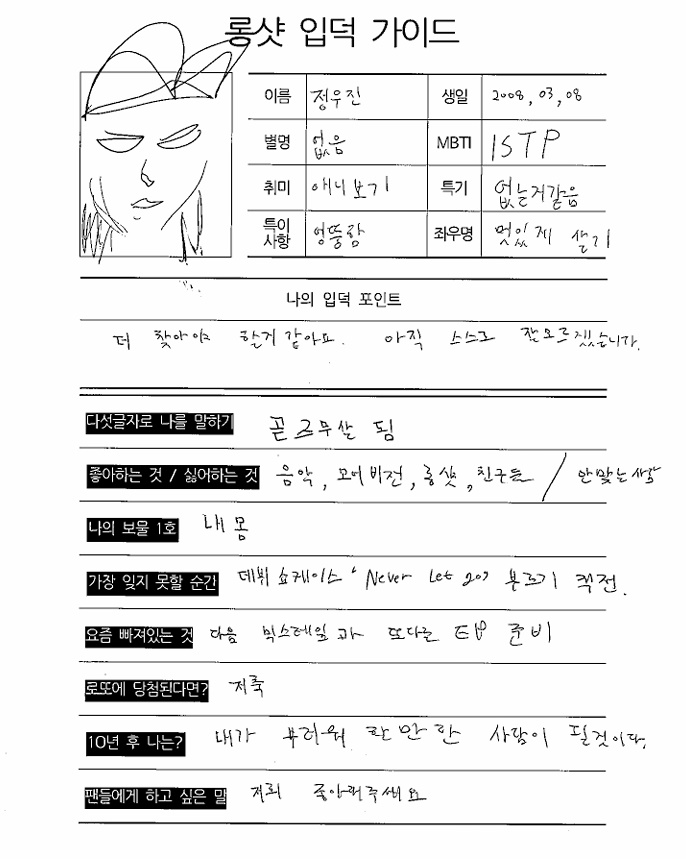 롱샷 입덕 가이드
이름 정우진 생일 2008, 03, 08
별명 없음 MBTI ISTP
취미 애니보기 특기 없는거같음
특이사항 엉뚱함 좌우명 멋있게 살기
나의 입덕 포인트
더 찾아야 할거같아요. 아직 스스로 잘모르겠습니다.
다섯글자로 나를 말하기 곧 20살 됨
좋아하는 것 / 싫어하는 것 음악, 모어비전, 롱샷, 친구들 / 안맞는사람
나의 보물 1호 내 몸
가장 잊지 못할 순간 데뷔 쇼케이스 'Never let go' 부르기 직전.
요즘 빠져있는 것 다음 믹스테잎과 또다른 EP 준비
로또에 당첨된다면? 저축
10년 후 나는? 내가 부러워 할만한 사람이 될것이다.
팬들에게 하고 싶은 말 저희 좋아해주세요